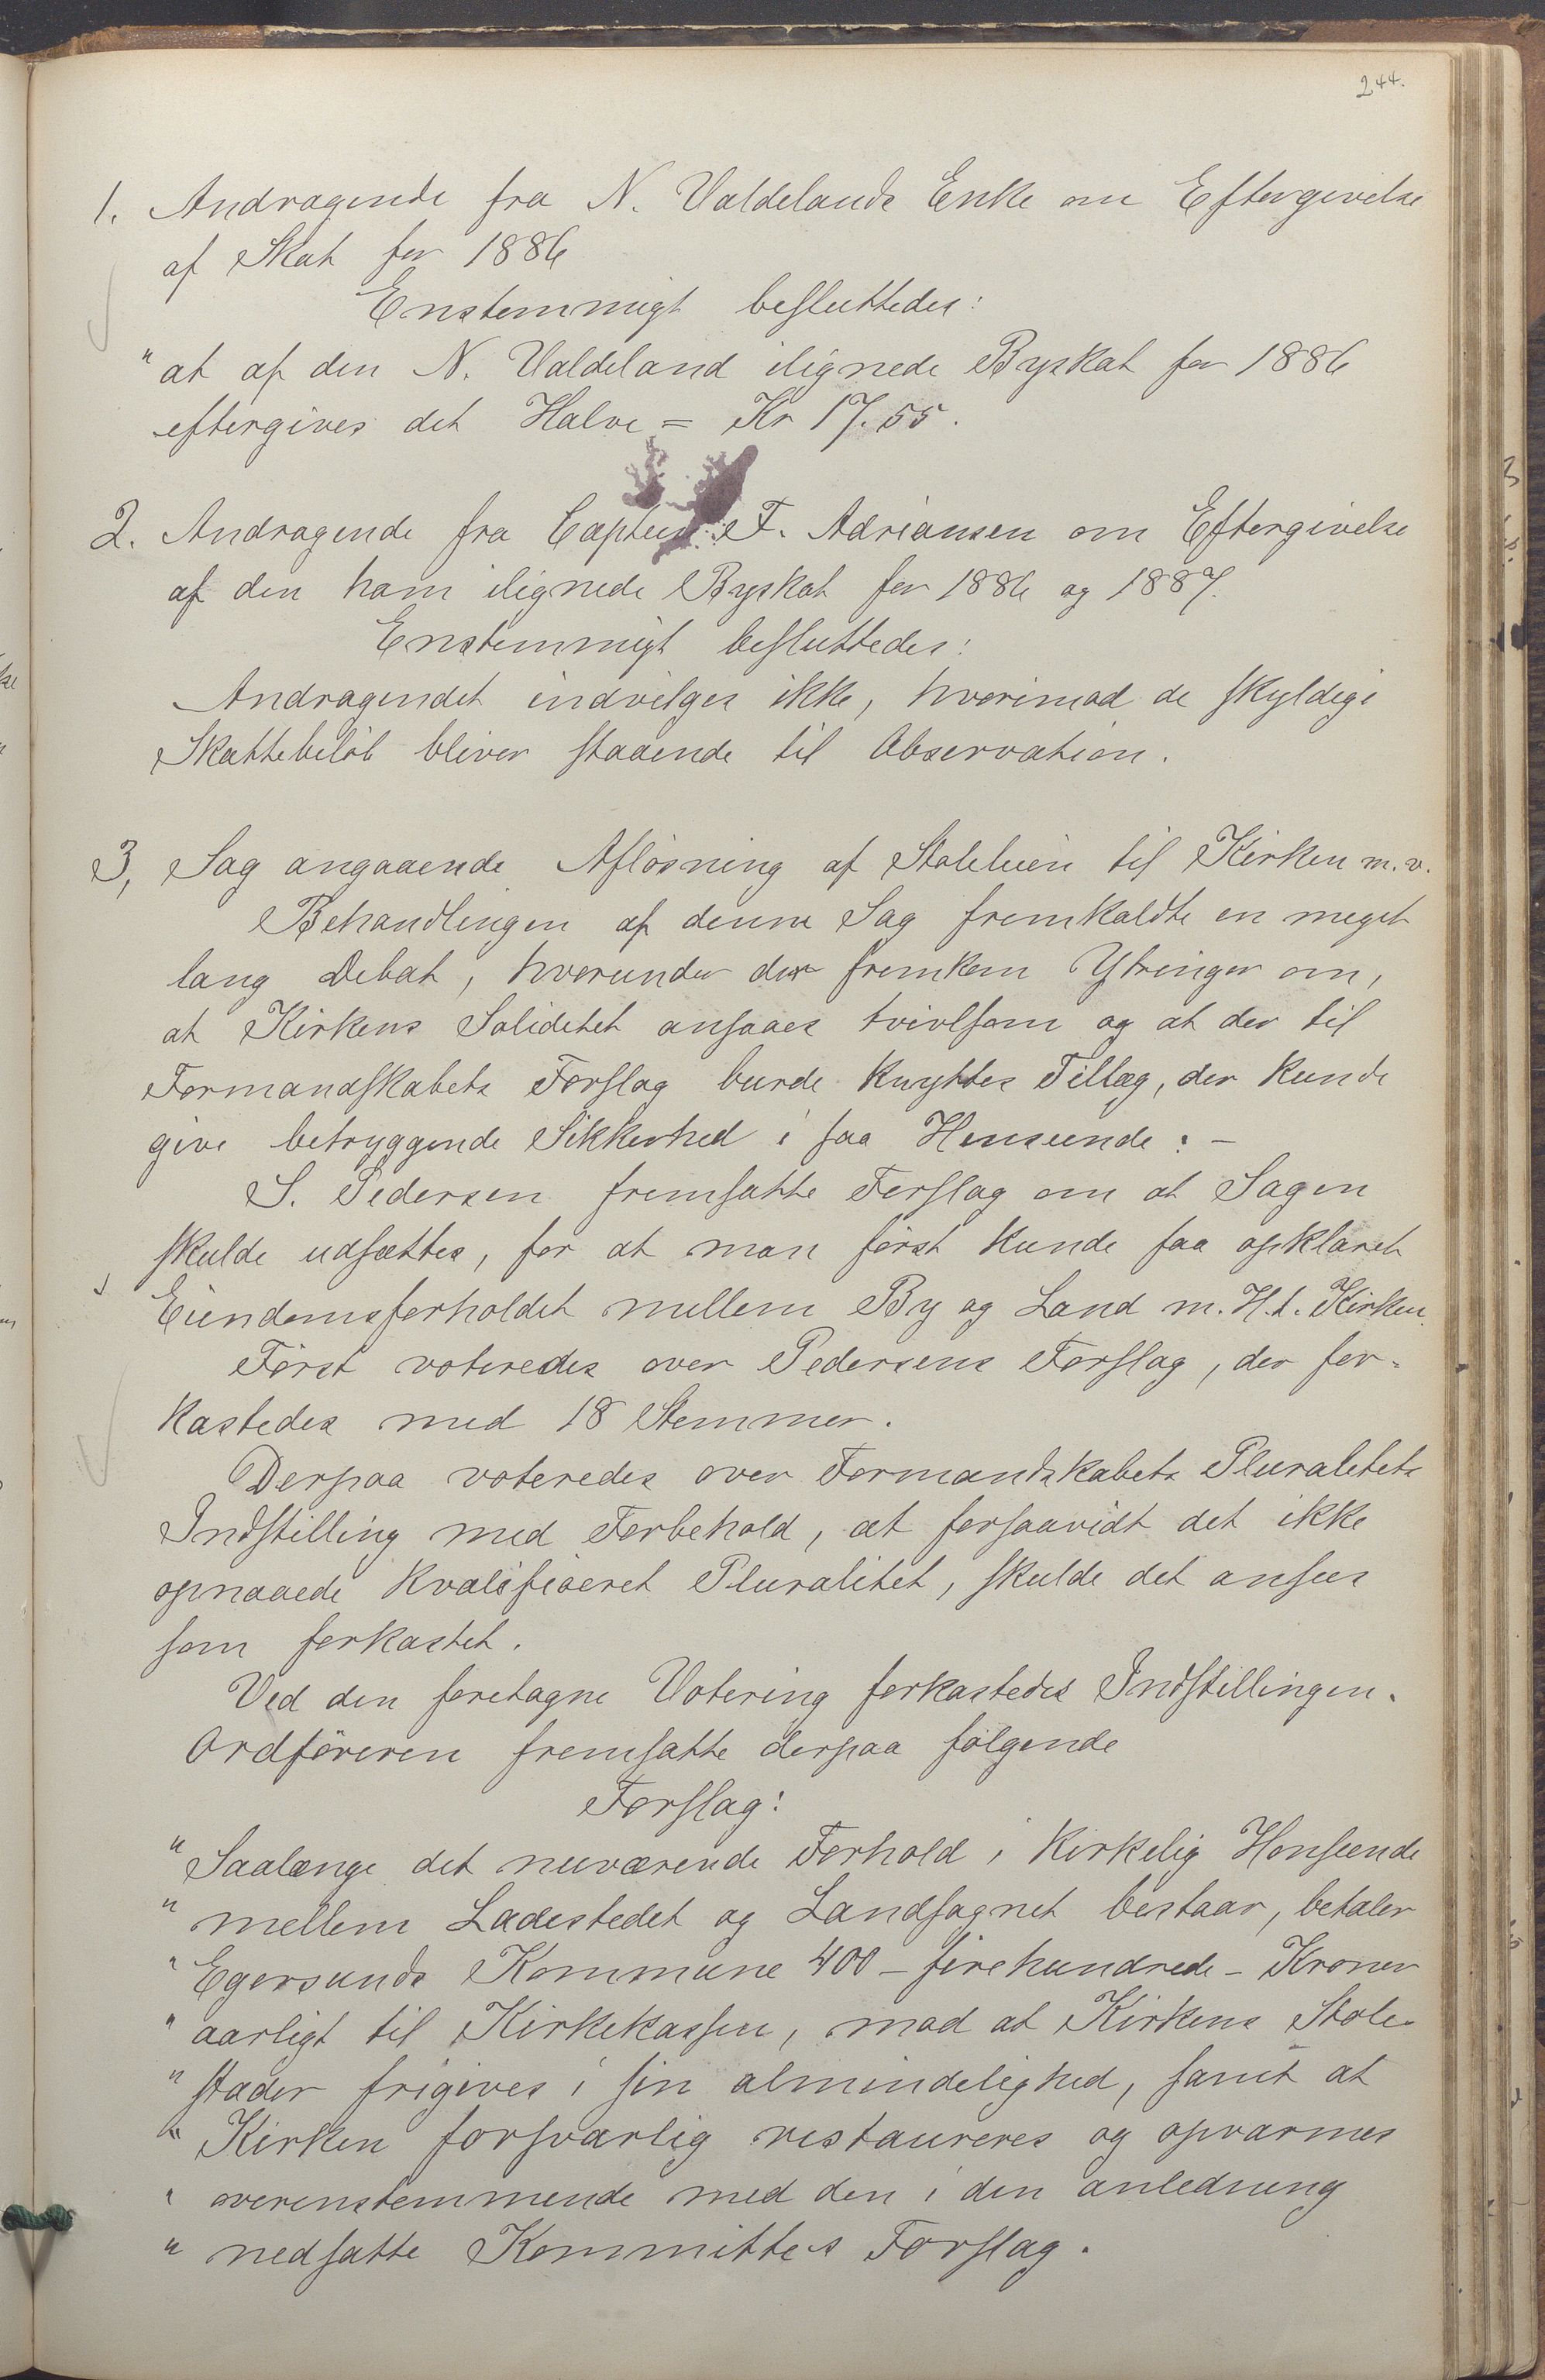 244.
1. Andragende fra N. Valdelands Enke om Eftergivelse
af Skat for 1886
Enstemmigt besluttedes:
"at af den N. Valdeland ilignede Byskat for 1886
eftergives det Halve = Kr 17.55.
2. Andragende fra Captein F. Adriansen om Eftergivelse
af den ham ilignede Byskat for 1886 og 1887.
Enstemmigt besluttedes:
Andragendet indvilges ikke, hvorimod de skyldige
Skattebeløb bliver staaende til Observation.
3, Sag angaaende Afløsning af Stoleleien til Kirken m.v.
Behandlingen af denne Sag fremkaldte en meget
lang Debat, hvorunder der fremkom Ytringer om,
at Kirkens Soliditet ansaaes tvivlsom og at der til
Formandskabets Forslag burde knyttes Tillæg, der kunde
give betryggende Sikkerhed i saa Henseende. -
S. Pedersen fremsatte Forslag om at Sagen
skulde udsættes, for at man først kunde faa opklaret
Eiendomsforholdet mellem By og Land m. H. t. Kirken.
Først voteredes over Pedersens Forslag, der for-
kastedes med 18 Stemmer.
Derpaa voteredes over Formandskabets Pluralitets
Indstilling med Forbehold, at forsaavidt det ikke
opnaaede kvalificeret Pluralitet, skulde det ansees
som forkastet.
Ved den foretagne Votering forkastedes Indstillingen.
Ordføreren fremsatte derpaa følgende
Forslag:
"Saalænge det nuværende Forhold i kirkelig Henseende
"mellem Ladestedet og Landsognet bestaar, betaler
"Egersunds Kommune 400 - firehundrede - Kroner
"aarligt til Kirkekassen, mod at Kirkens Stole-
"stader frigives i sin almindelighed, samt at
"Kirken forsvarlig restaureres og opvarmes
"overenstemmende med den i den anledning
"nedsatte Kommittes Forslag.